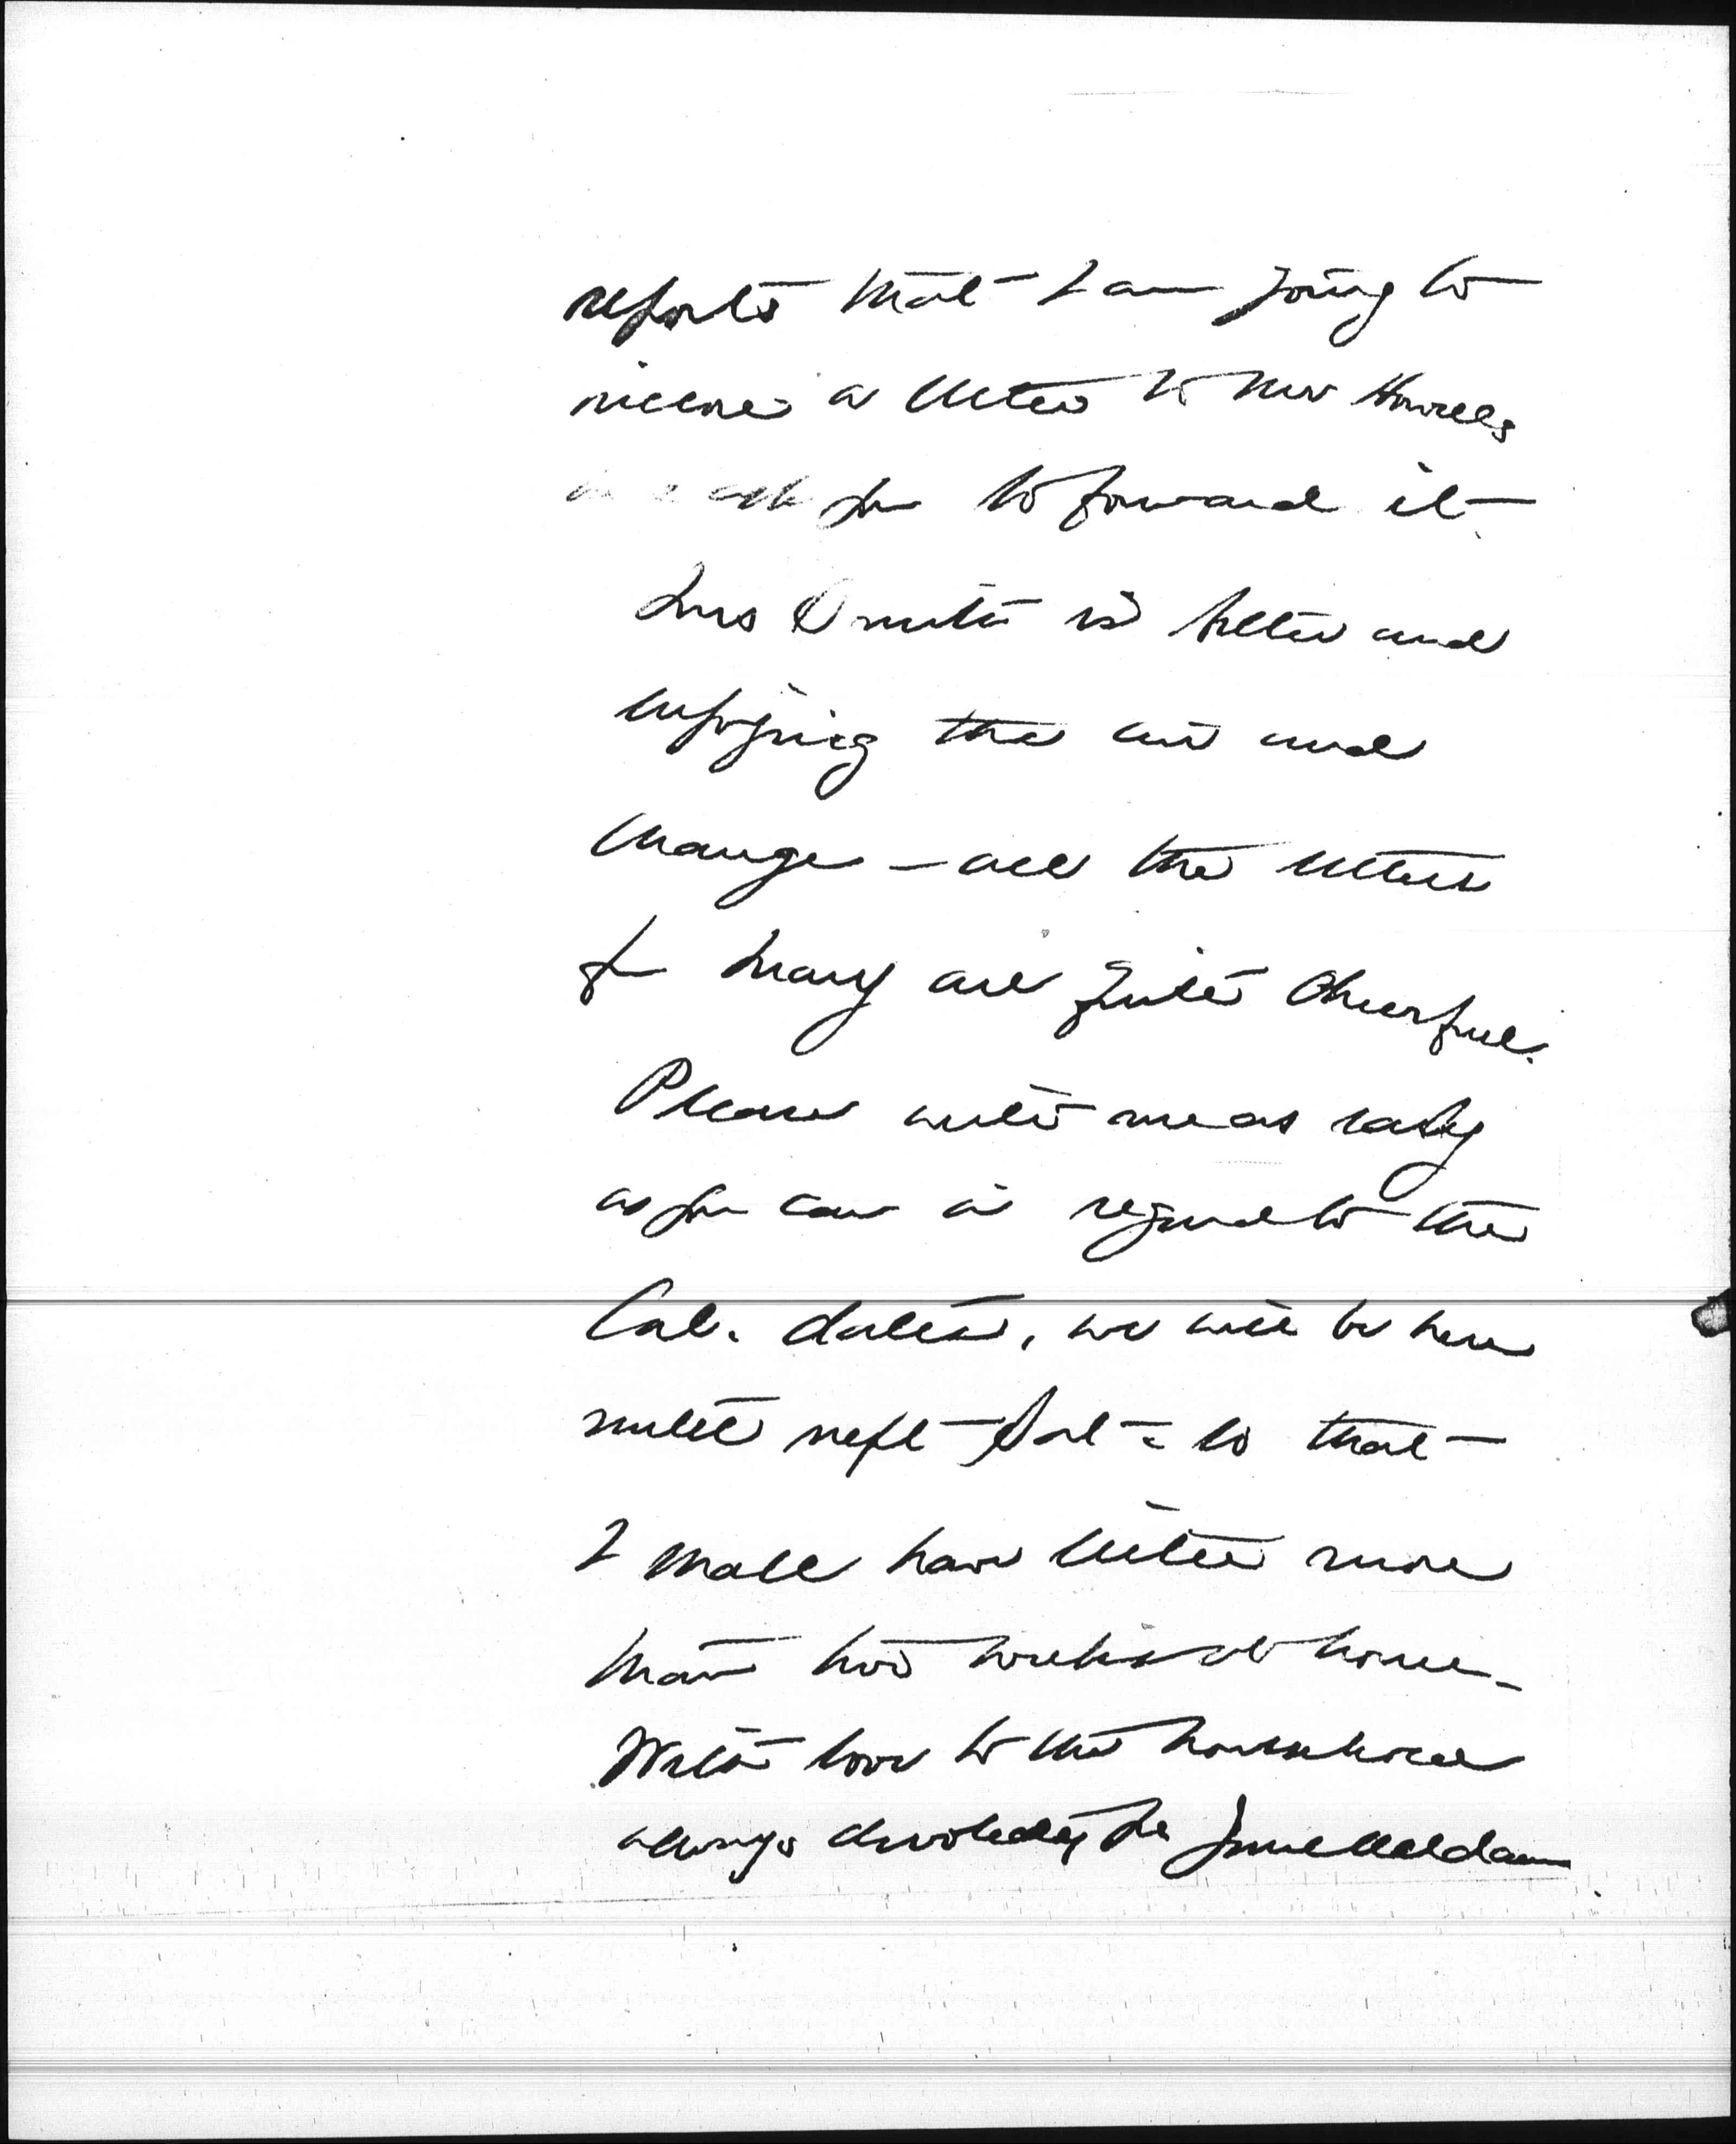 reports that I am going to
inclose a letter to Mr Howells
and ask you to forward it
Mrs Smith is better and
enjoying the air and
change - all the letters
from Mary are quite cheerful.
Please write me as early
as you can in regard to the
Cal. dates, we will be here
until next Sat - so that
I shall have little more
than two weeks at home -
With love to the household
always devotedly